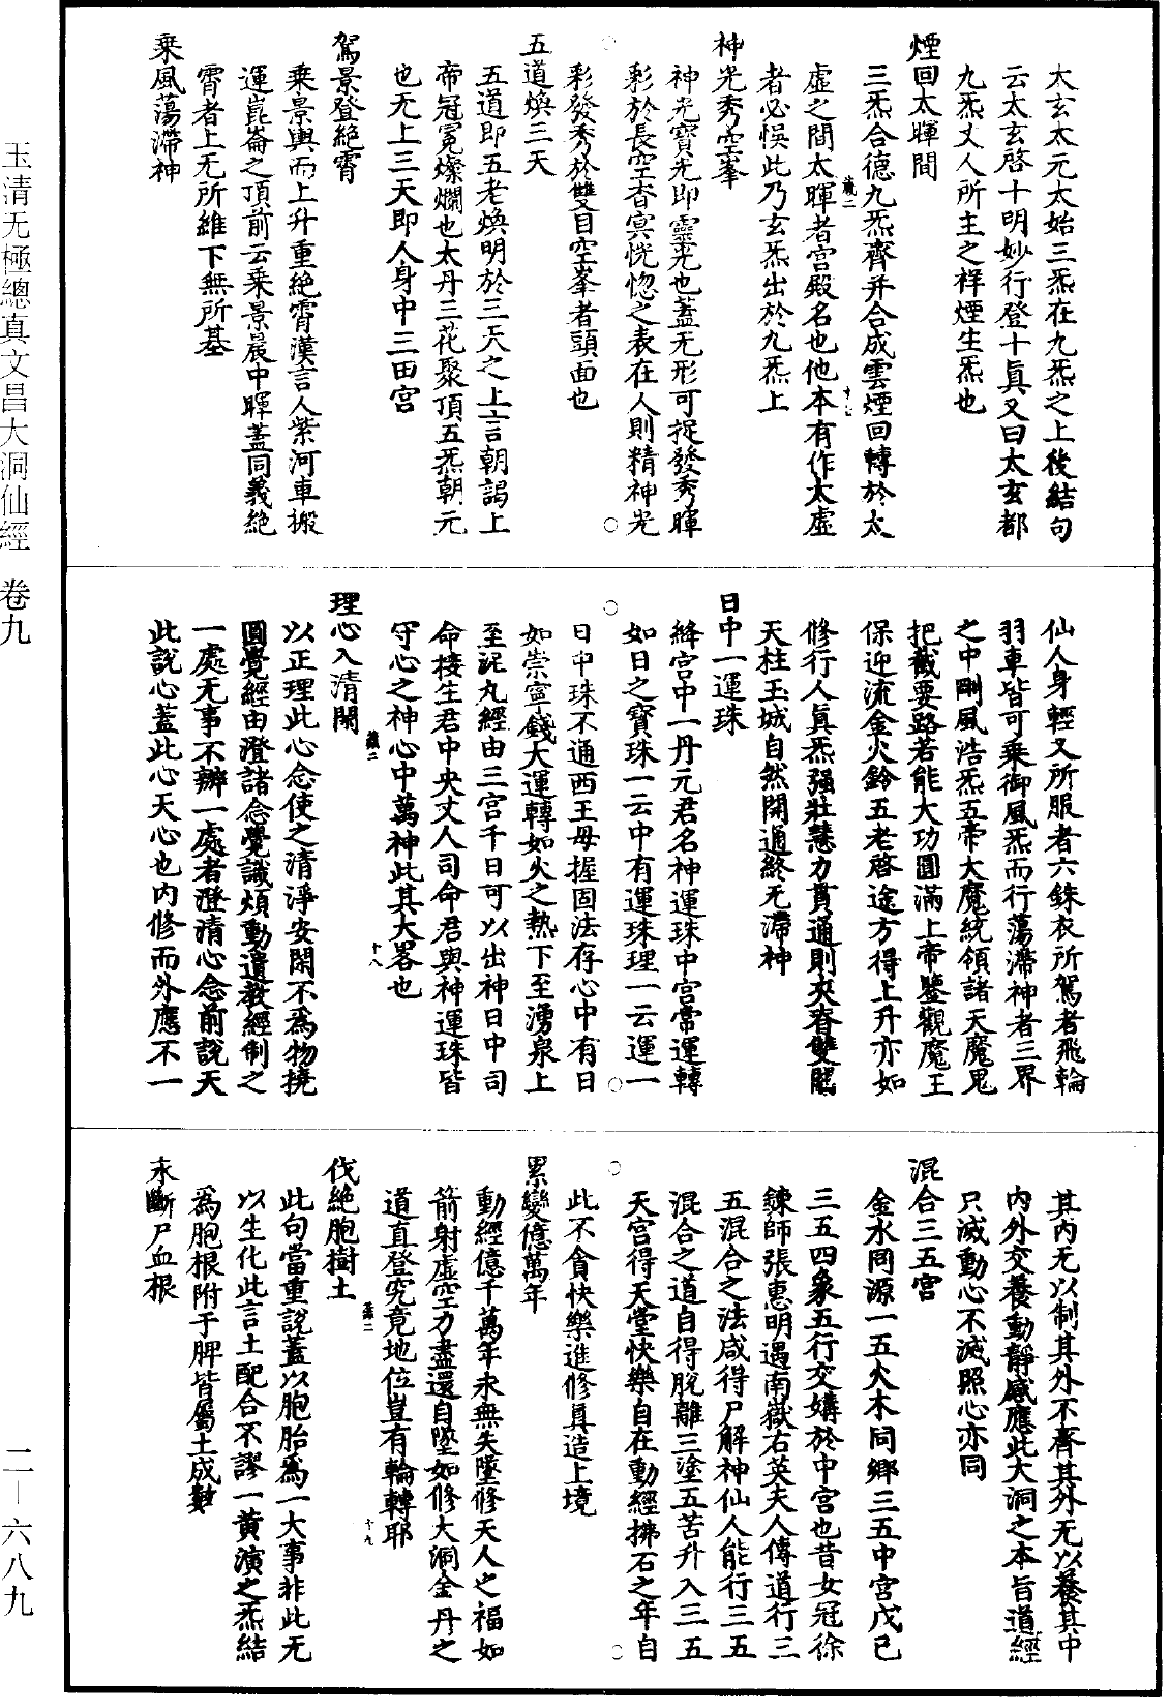 太玄太元太始三炁在九炁之上後結句
云太玄啓十明妙行登十眞又曰太玄都
九炁丈人所主之祥煙生炁也
煙回太暉間
三炁合德九炁齊并合成雲煙回轉於太
虛之間太暉者宮殿名也他本有作太虛
者必悞此乃玄炁出於九炁上
神光秀空峯
神光寶光即靈光也蓋无形可捉發秀暉
彩於長空杳冥恍惚之表在人則精神光
彩發秀於雙目空峯者頭面也
五道煥三天
五道即五老煥明於三天之上言朝謁上
帝冠冕燦爛也太丹三花聚頂五炁朝元
也无上三天即人身中三田宮
駕景登絕霄
乗景輿而上升重絕霄漢言人紫河車搬
運崑崙之頂前云乗景晨中暉蓋同義絕
霄者上无所維下無所基
乗風蕩滯神
仙人身輕又所服者六銖衣所駕者飛輪
羽車皆可乗御風炁而行蕩滯神者三界
之中剛風浩炁五帝大魔統領諸天魔鬼
把截要路若能大功圓滿上帝鑒觀魔王
保迎流金火鈴五老啓途方得上升亦如
修行人眞炁强壯慧力貫通則夾脊雙關
天柱玉城自然開通終无滯神
日中一運珠
絳宮中一丹元君名神運珠中宮常運轉
如日之寶珠一云中有運珠理一云運一
日中珠不通西王母握固法存心中有日
如崇寧錢大運轉如火之熱下至湧泉上
至泥丸經由三宮千日可以出神日中司
命接生君中央丈人司命君與神運珠皆
守心之神心中萬神此其大畧也
理心入清閑
以正理此心念使之清淨安閑不爲物撓
圓覺經由澄諸念覺識煩動遺教經制之
一處无事不辦一處者澄清心念前說天
此說心蓋此心天心也内修而外應不一
其内无以制其外不齊其外无以養其中
内外交養動靜感應此大洞之本旨道經
只滅動心不滅照心亦同
混合三五宮
金水同源一五火木同鄉三五中宮戊己
三五四象五行交媾於中宮也昔女冠徐
鍊師張惠明遇南嶽右英夫人傳道行三
五混合之法咸得尸解神仙人能行三五
混合之道自得脫離三塗五苦升入三五
天宮得天堂快樂自在動經拂石之年自
此不貪快樂進修眞造上境
累變億萬年
動經億千萬年永無失墜修天人之福如
箭射虛空力盡還自墜如修大洞金丹之
道直登究竟地位豈有輪轉耶
伐絕胞樹土
此句當重說蓋以胞胎爲一大事非此无
以生化此言土配合不謬一黃演之炁結
爲胞根附于脾皆屬土成數
永斷尸血根
玉清无極總真文昌大洞仙經 卷九
二—六八九